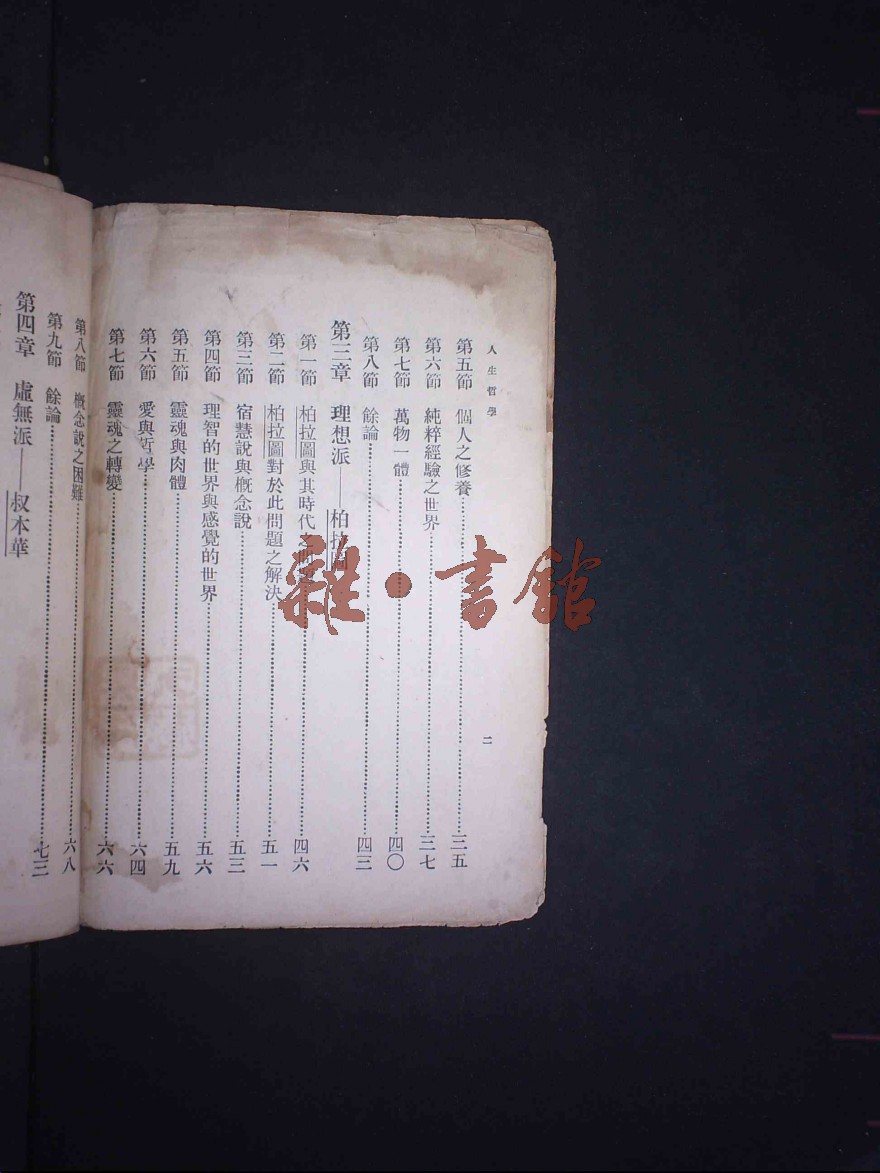 人生哲學
二
第五節 個人之修養 三五
第六節 純粹經驗之世界 三七
第七節 萬物一體 四〇
第八節 餘論 四三
第三章 理想派——柏拉圖
第一節 柏拉圖與其時代之 四六
第二節 柏拉圖對於此問題之解決 五一
第三節 宿慧說與概念說 五三
第四節 理智的世界與感覺的世界 五六
第五節 靈魂與肉體 五九
第六節 愛與哲學 六四
第七節 靈魂之轉變 六六
第八節 概念說之困難 六八
第九節 餘論 七三
第四章 虛無派——叔本華
雜·書館